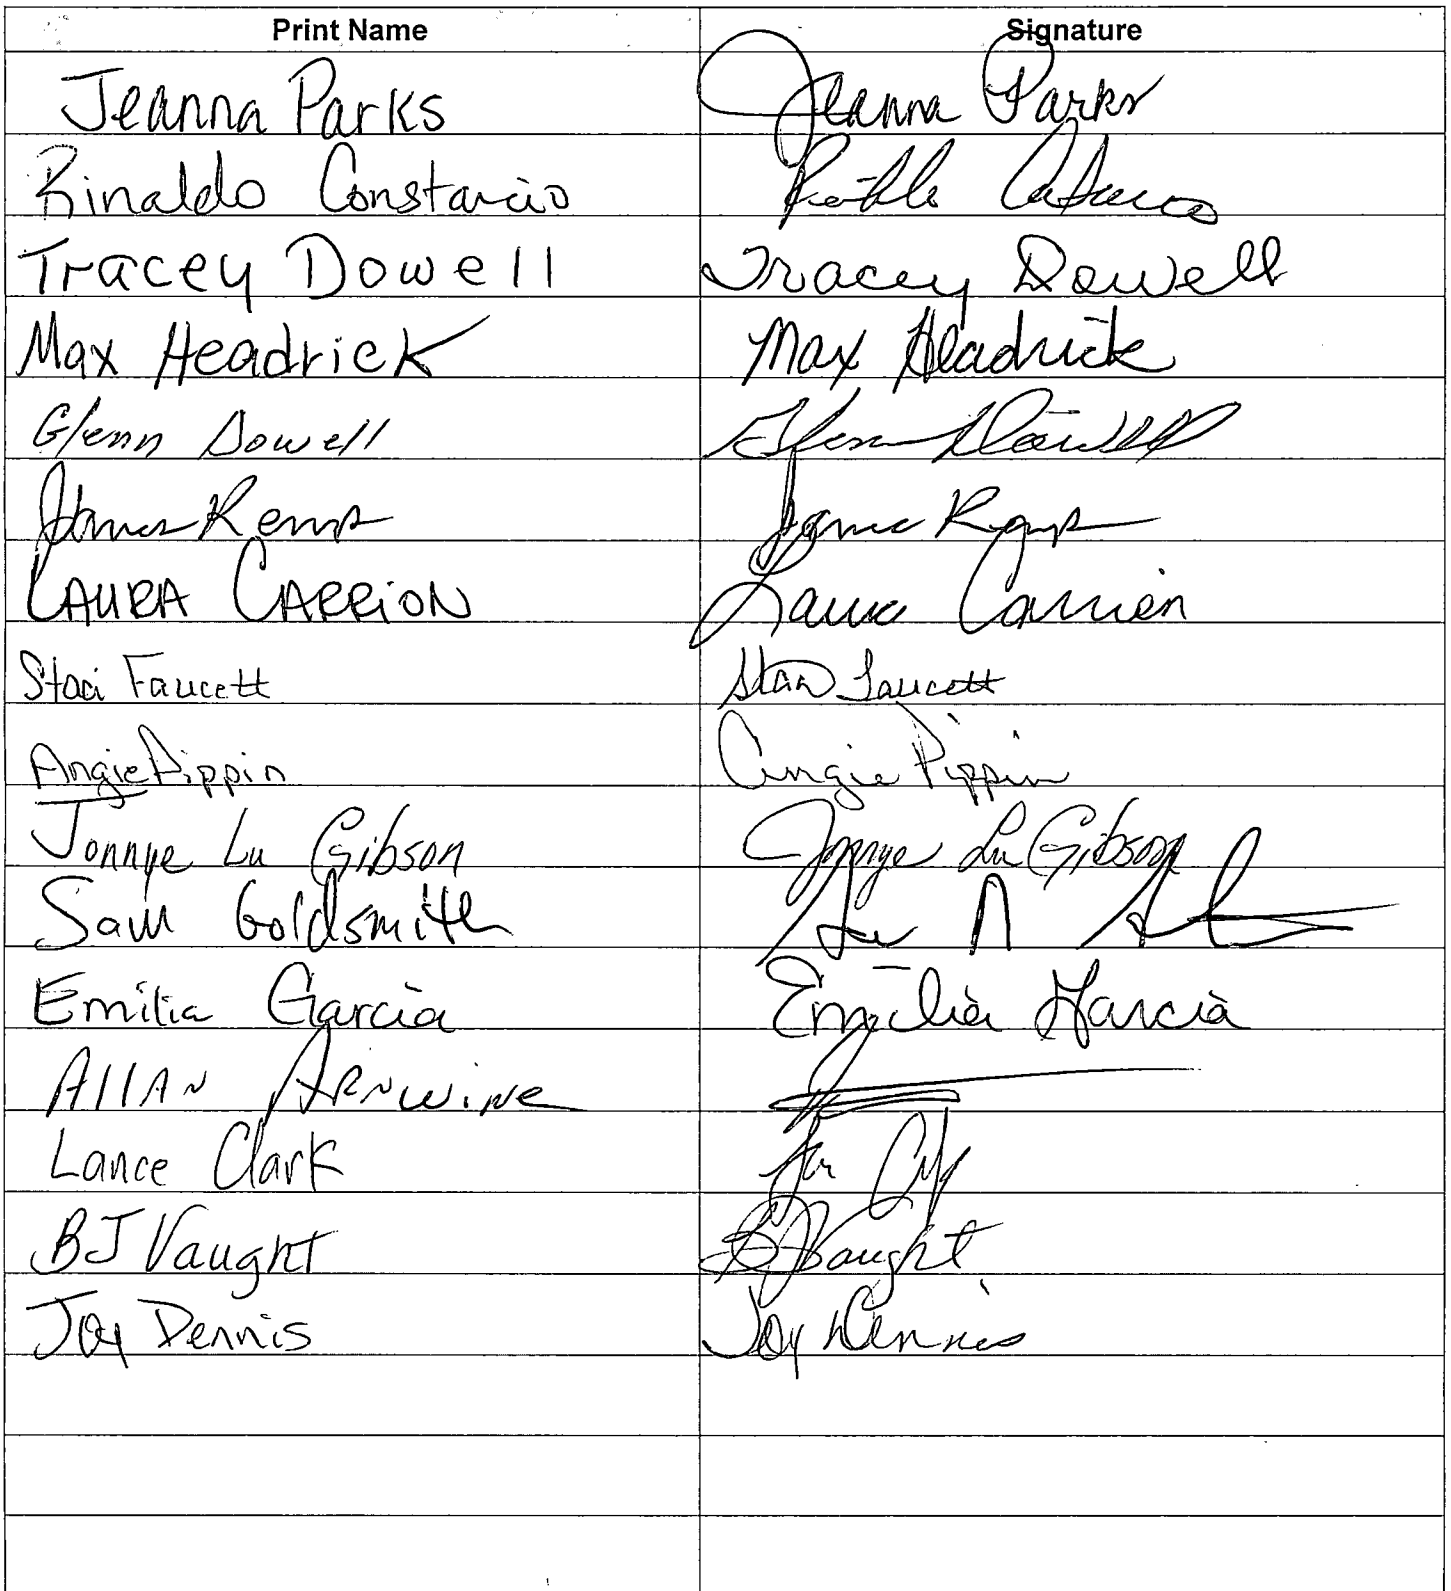 Print Name Signature
Jeanna Parks Jeanna Parks
Rinaldo Constancio
Tracey Dowell Tracey Dowell
Max Headrick Max Headrick
Glenn Dowell Glenn Dowell
James Kemp James Kemp
LAURA CARRiON Laura Carrion
Staci Faucett Staci Faucett
Angie Pippin Angie Pippin
Jonnye Lu Gibson Jonnye Lu Gibson
Sam Goldsmith
Emilia Garcia Emilia Garcia
AllAN ARNwiNe
Lance Clark
BJ Vaught BJ Vaught
Joy Dennis Joy Dennis